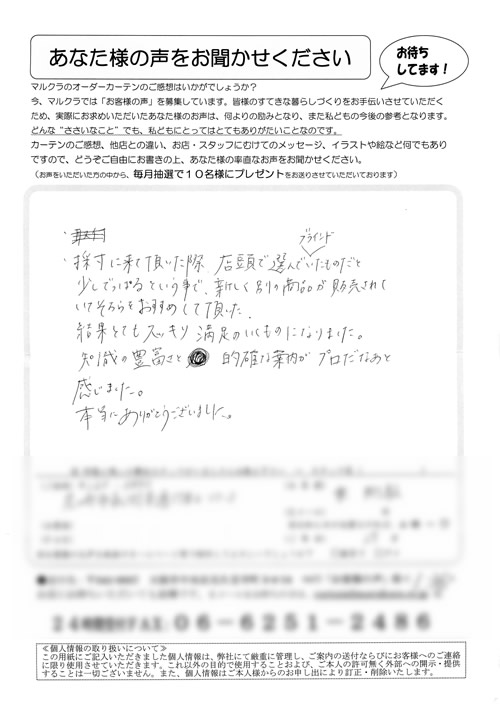 あなた様の声をお聞かせください
お待ち
してます！
マルクラのオーダーカーテンのご感想はいかがでしょうか？
今、マルクラでは「お客様の声」を募集しています。皆様のすてきな暮らしづくりをお手伝いさせていただく
ため、実際にお求めいただいたあなた様のお声は、何よりの励みとなり、また私どもの今後の参考となります。
どんな“ささいなこと”でも、私どもにとってはとてもありがたいことなのです。
カーテンのご感想、他店との違い、お店・スタッフにむけてのメッセージ、イラストや絵など何でもあり
ですので、どうぞご自由にお書きの上、あなた様の率直なお声をお聞かせください。
（お声をいただいた方の中から、毎月抽選で１０名様にプレゼントをお送りさせていただいております）
ブラインド
・採寸に来て頂いた際 店頭で選んでいたものだと
少しでっぱるという事で、新しく別の商品が販売されて
いてそちらをおすすめして頂いた。
結果とてもスッキリ満足のいくものになりました。
知識の豊富さと 的確な案内が プロだなあと
感じました。
本当にありがとうございました。
24時間受付FAX：06-6251-2486
≪個人情報の取り扱いについて≫
この用紙にご記入いただきました個人情報は、弊社にて厳重に管理し、ご案内の送付ならびにお客様へのご連絡
に限り使用させていただきます。これ以外の目的で使用することおよび、ご本人の許可無く外部への開示・提供
することは一切ございません。また、個人情報はご本人様からのお申し出により訂正・削除いたします。